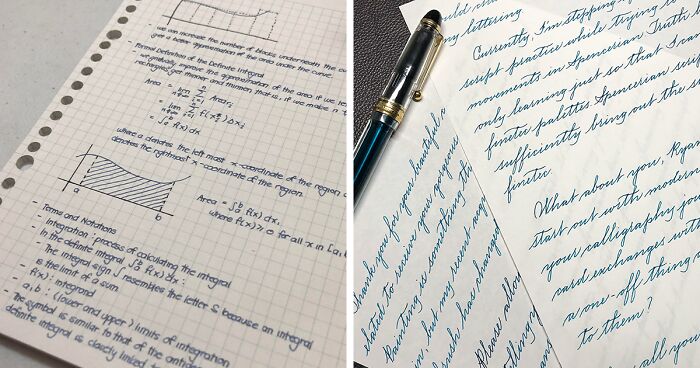 - we can increase the number of blocks underneath the cu
get a better approximation of the area under the curve.
Formal Definition of the Definite Integral
- we gradually improve the approximation of the area if we let
rectangles get thinner and thinner that is, if we make n
Area = lim n→∞ Σ i=1 n Area i
= lim n→∞ Σ i=1 n f(x*i) Δxi
= ∫ a b f(x) dx
where a denotes the left most x-coordinate of the region
denotes the rightmost x-coordinate of the region.
a b
Area = ∫ a b f(x) dx,
where f(x) ≥ 0 for all x in [a, b
Terms and Notations
- Integration : process of calculating the integral
- In the definite integral ∫ a b f(x) dx :
- The integral sign ∫ resembles the letter S because an integral
is the limit of a sum.
- f(x) : integrand
- a, b : (lower and upper) limits of integration
- The symbol is similar to that of the
definite integral is closely linked to
ng lettering
Currently, I'm stepping
script practice while trying to
movements in Spencerian Truth
only learning just so that I
finetec palettes. Spencerian scri
sufficiently bring out the s
finetec.
What about you, Ryan
start out with modern
your calligraphy jou
card exchanges with
a one-off thing
to them?
all you
Thank you for your beautiful
elated to receive your gorgeous
Painting is something th
in, but my recent acq
has changed
Please allow